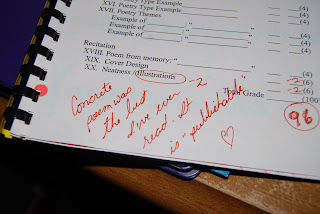 XVI. Poetry Type Example ___ (4)
XVII. Poetry Themes
Example of ___ (4)
Example of ___ (4)
Example of ___ (4)
Recitation
XVIII. Poem from memory: " (4)
XIX. Cover Design -2 (6)
XX. Neatness /Illustrations -2 (6)
Total Grade (100
96
Concrete -2
poem was
the best
I've ever
read. It
is "publishable"